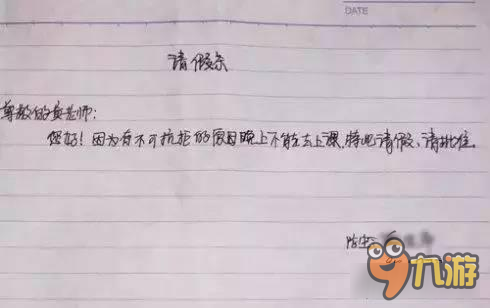 DATE
请假条
尊敬的黄老师:
您好!因为有不可抗拒的原因晚上不能去上课,特此请假、请批准。
九游